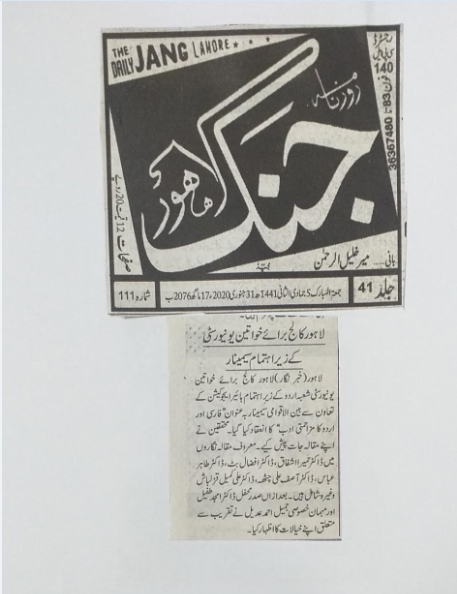 THE DAILY JANG LAHORE
رجسٹرڈ
سی پی ایل
140
فون 83 تا
36367480
روزنامہ
جنگ
لاہور
صفحات 12 قیمت 20 روپے
بانی ۔۔۔۔ میر خلیل الرحمٰن
جلد 41
جمعۃ المبارک 5 جمادی الثانی 1441ھ 31 جنوری 2020ء 17 ماگھ 2076 ب
شمارہ 111
لاہور کالج برائے خواتین یونیورسٹی
کے زیر اہتمام سیمینار
لاہور (خبر نگار) لاہور کالج برائے خواتین
یونیورسٹی شعبہ اردو کے زیر اہتمام ہائیر ایجوکیشن کے
تعاون سے بین الاقوامی سیمینار بہ عنوان "فارسی اور
اردو کا مزاحمتی ادب" کا انعقاد کیا گیا۔ محققین نے
اپنے مقالہ جات پیش کیے۔ معروف مقالہ نگاروں
میں ڈاکٹر حمیرا اشفاق، ڈاکٹر افضال بٹ، ڈاکٹر طاہر
عباس، ڈاکٹر آصف علی چٹھہ، ڈاکٹر علی کمیل قزلباش
وغیرہ شامل ہیں۔ بعد ازاں صدر محفل ڈاکٹر امجد طفیل
اور مہمان خصوصی جمیل احمد عدیل نے تقریب سے
متعلق اپنے خیالات کا اظہار کیا۔